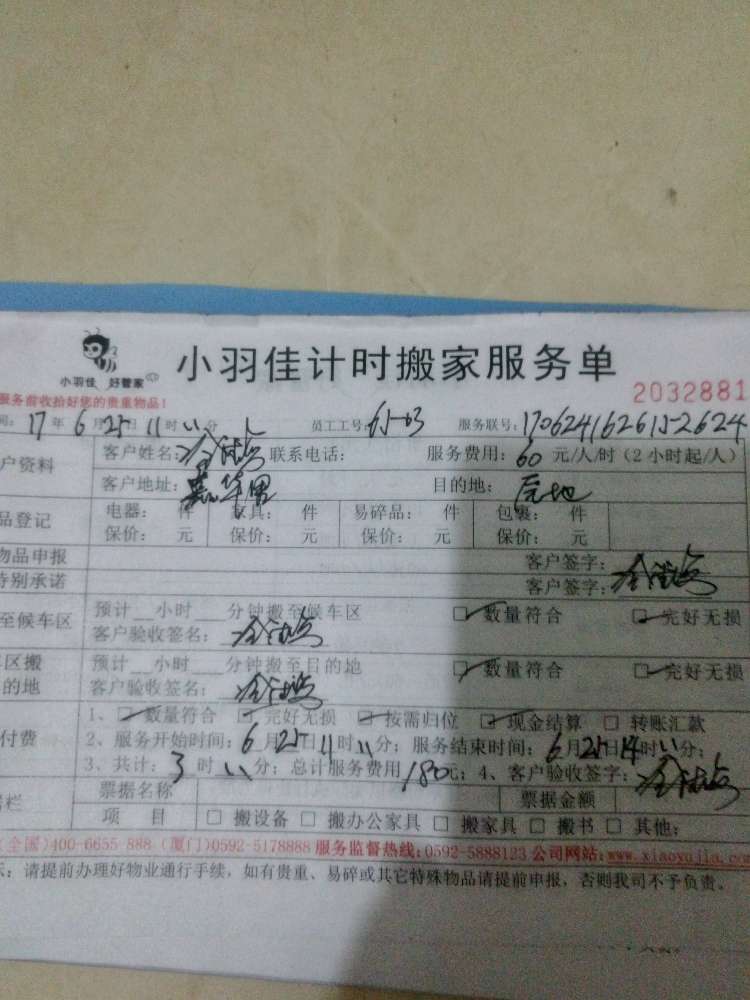 小羽佳 好管家
小羽佳计时搬家服务单
2032881
服务前收拾好您的贵重物品!
间: 17年6月25日11时 分 员工工号: 服务联号:
户资料
客户姓名: 联系电话: 服务费用:60元/人/时(2小时起/人)
客户地址: 目的地:
品登记
电器: 件 家具: 件 易碎品: 件 包裹: 件
保价: 元 保价: 元 保价: 元 保价: 元
物品申报 客户签字:
特别承诺 客户签字:
至候车区
预计__小时__分钟搬至候车区 数量符合 完好无损
客户验收签名:
区搬
的地
预计__小时__分钟搬至目的地 数量符合 完好无损
客户验收签名:
付费
1、数量符合 完好无损 按需归位 现金结算 转账汇款
2、服务开始时间:6月25日11时 分;服务结束时间:6月25日14时 分;
3、共计:3时 分;总计服务费用180元;4、客户验收签字:
票据名称 票据金额
栏
项 目 搬设备 搬办公家具 搬家具 搬书 其他:
(全国)400-6655-888 (厦门)0592-5178888 服务监督热线:0592-5888123 公司网站:www.xiaoyujia.com
示:请提前办理好物业通行手续,如有贵重、易碎或其它特殊物品请提前申报,否则我司不予负责。